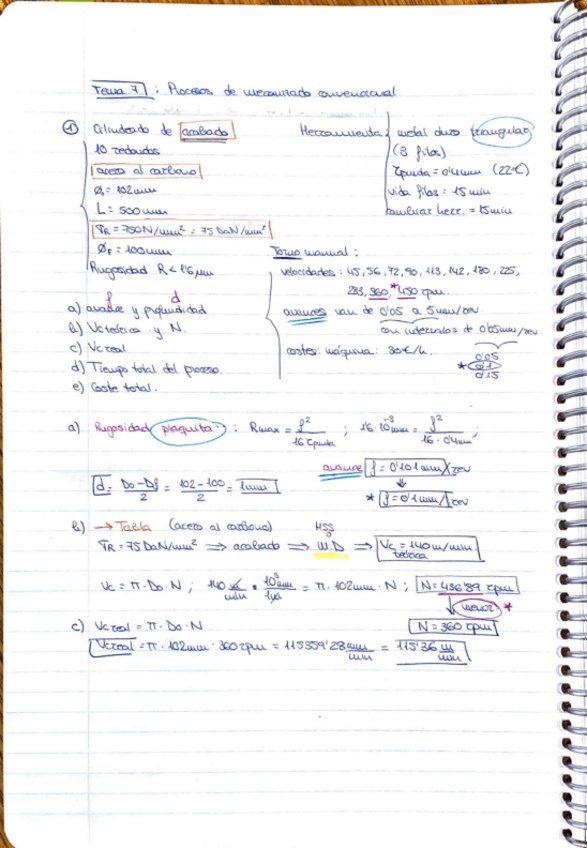 Tema 7: Procesos de mecanizado convencional
① Cilindrado de acabado
10 redondos
acero al carbono
Ø₀ = 102mm
L = 500mm
σR = 750N/mm² = 75 DaN/mm²
ØF = 100mm
Rugosidad R < 1'6 μm
Herramienta: metal duro triangular
(3 filos)
rpunta = 0'4mm (22€)
vida filos = 15 min
cambiar herr. = 15min
Torno manual:
velocidades: 45, 56, 72, 90, 113, 142, 180, 225,
283, 360, *450 rpm.
avances van de 0'05 a 5mm/rev
con intervalos de 0'05mm/rev.
costes: máquina: 30€/h.
0'05
* 0'1
0'15
f d
a) avance y profundidad
b) Vc teórica y N.
c) Vc real
d) Tiempo total del proceso.
e) Coste total.
a) Rugosidad plaquita: Rmax = f² / 16 rpunta ; 1'6·10⁻³mm = f² / 16·0'4mm ;
avance f = 0'101 mm/rev
d = Do-Df / 2 = 102-100 / 2 = 1mm
* f = 0'1 mm/rev
b) → Tabla (acero al carbono) HSS
σR = 75 DaN/mm² ⇒ acabado ⇒ M.D ⇒ Vc teórica = 140 m/min
Vc = π·Do·N ; 140 m/min * 10³mm/1m = π·102mm·N ; N = 436'89 rpm
menor *
N = 360 rpm
c) Vc real = π·Do·N
Vc real = π·102mm·360rpm = 115359'28 mm/min = 115'36 m/min